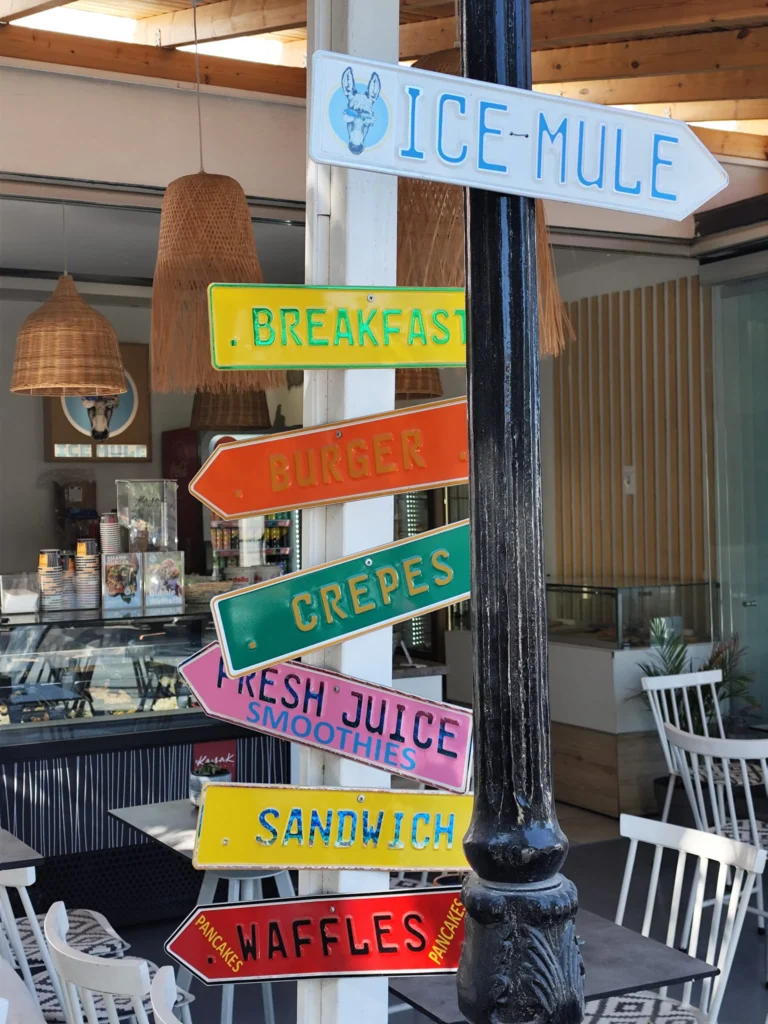 ICE MULE
.BREAKFAST
BURGER
CREPES
FRESH JUICE
SMOOTHIES
SANDWICH
PANCAKES
WAFFLES
PANCAKES
Kayak